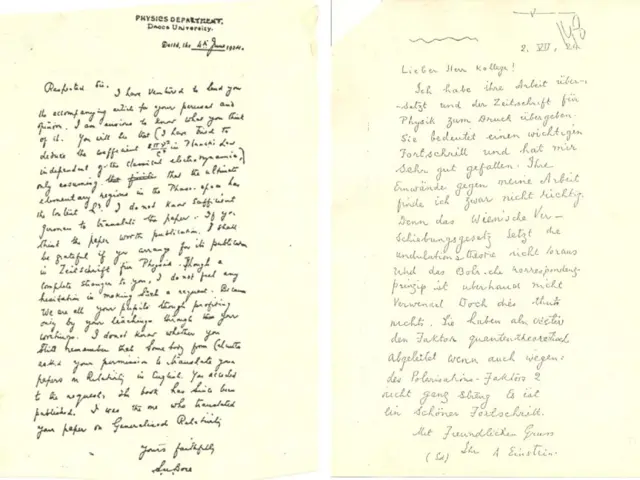 PHYSICS DEPARTMENT.
Dacca University.
Dated, the 4th June 1924.
Respected Sir,
I have ventured to send you
the accompanying article for your perusal and
opinion. I am anxious to know what you think
of it. You will see that I have tried to
deduce the coefficient in Planck's Law
independent of the classical electrodynamics,
only assuming that the ultimate
elementary regions in the Phase-space has
the content h³. I do not know sufficient
German to translate the paper. If you
think the paper worth publication, I shall
be grateful if you arrange for its publication
in Zeitschrift für Physik. Though a
complete stranger to you, I do not feel any
hesitation in making such a request. Because
we are all your pupils though profiting
only by your teachings through your
writings. I do not know whether you
still remember that somebody from Calcutta
asked your permission to translate your
papers on Relativity in English. You acceded
to the request. The book has since been
published. I was the one who translated
your paper on Generalised Relativity
Yours faithfully
S.N. Bose
2. VII. 24
Lieber Herr Kollege!
Ich habe ihre Arbeit über-
setzt und der Zeitschrift für
Physik zum Druck übergeben.
Sie bedeutet einen wichtigen
Fortschritt und hat mir
Sehr gut gefallen. Ihre
Einwände gegen meine Arbeit
finde ich zwar nicht richtig.
Denn das Wienische Ver-
schiebungsgesetz setzt die
undulations theorie nicht voraus
und das Bohrsche korrespondenz-
prinzip ist überhaupt nicht
verwendet Doch dies thut
nichts. Sie haben als erster
den Faktor quantentheoretisch
abgeleitet wenn auch wegen
des Polarisations-Faktors 2
nicht ganz streng Es ist
ein Schöner Fortschritt.
Mit Freundlichen Gruss
Ihr A Einstein.
(Sd)